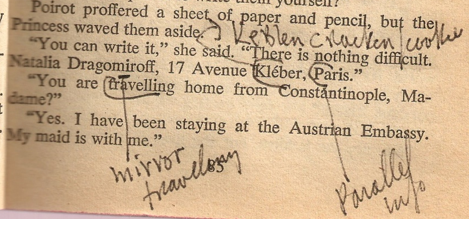 Poirot proffered a sheet of paper and pencil, but the
Princess waved them aside.
cracker/cookie
"You can write it," she said. "There is nothing difficult.
Natalia Dragomiroff, 17 Avenue Kléber, Paris."
"You are travelling home from Constantinople, Ma-
dame?"
"Yes. I have been staying at the Austrian Embassy.
My maid is with me."
mirror
85
Parallel
info